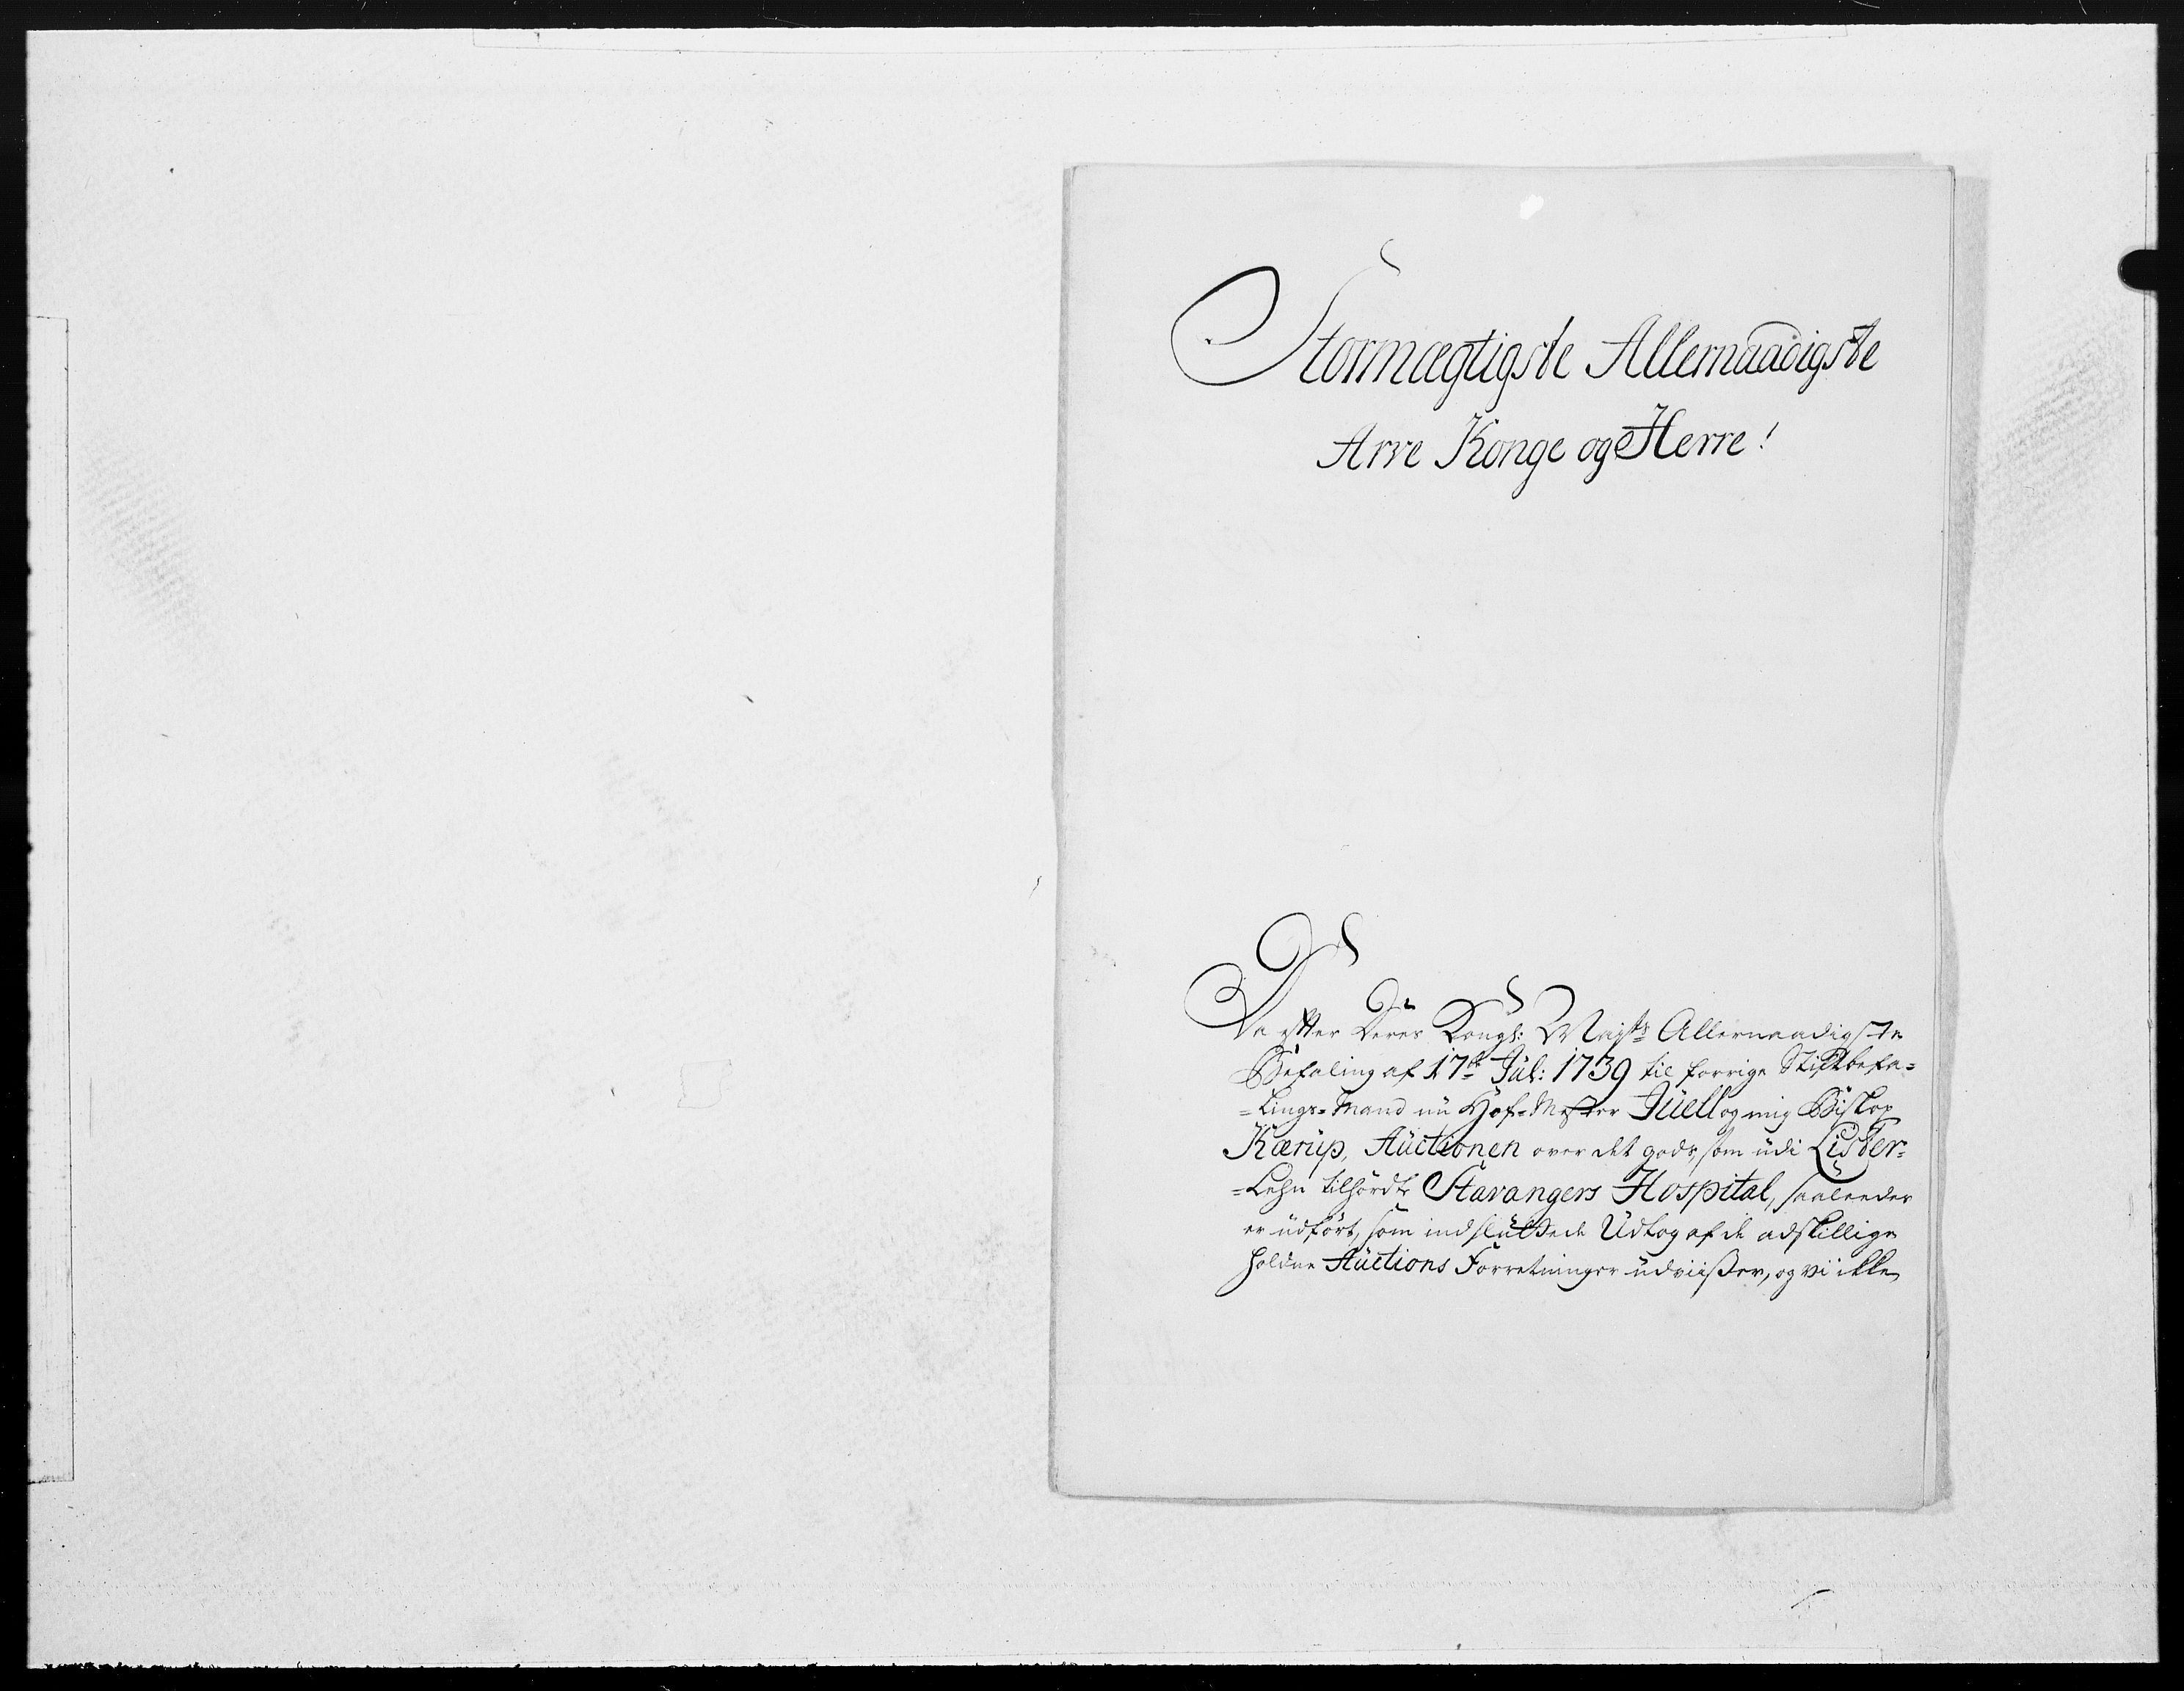 Stormægtigste Allernaadigste
Arve Konge og Herre!
Da efter Deres Kongl: Majsts Allernaadigste
Befaling af 17de Jul: 1739 til forrige Stiftbefa=
=lings=Mand nu Hof=Mester Jüell og mig Biskop
Kærüp, Aüctionen over det gods, som üdi Lister=
=Lehn tilhørdte Stavangers Hospital, saaleedes
er üdført, som indslüttede Udtog af de adskillige
holdne Aüctions Forretninger üdviißer, og vi ikke